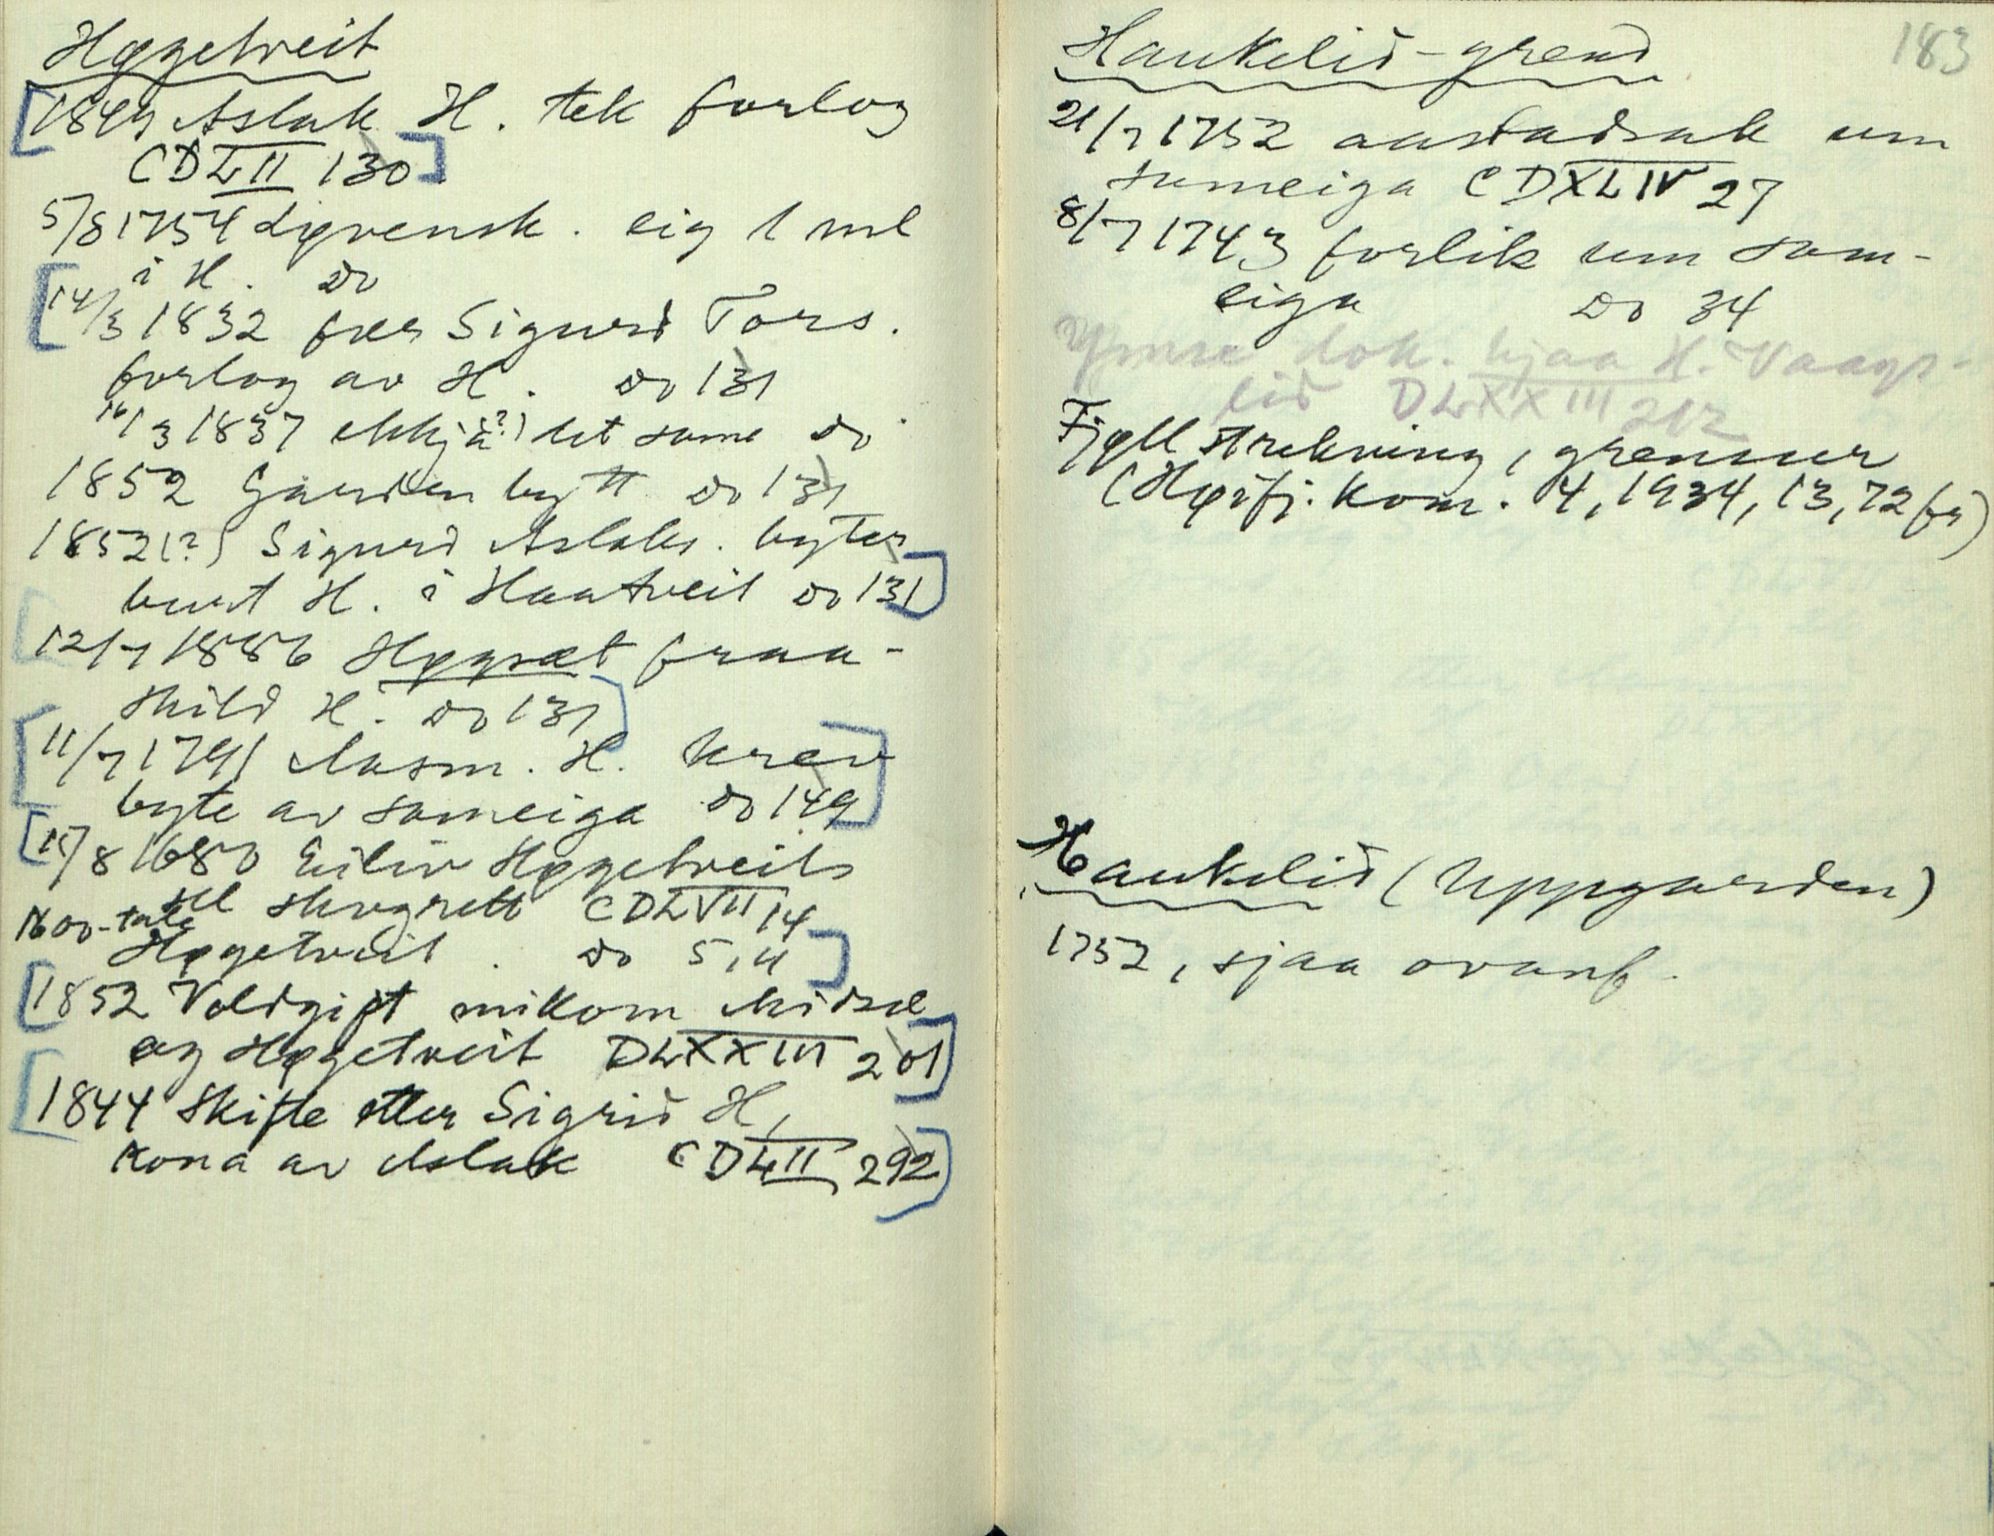 Høgetveit
[1849 Aslak H. tek forlog
CDLII 130]
5/8 1754 Løvensk. eig 1 ml
i H. do
[14/3 1832 fær Sigurd Tors.
forlog av H. do 131
16/3 1837 ekkja(?) det same do
1852 Garden bytt do 131
1852(?) Sigurd Aslaks. byter
burt H. i Haatveit do 131]
[12/7 1886 Høgsæt fraa-
skild H. do 131]
[11/7 1791 Aasm. H. krev
byte av sameiga do 149]
[15/8 1680 Eiliv Høgetveits
skogrett CDLVII 14
1600-tale
Høgetveit. do 5, 4]
[1852 Voldgift mikom
og Høgetveit DLXXIII 201]
[1844 Skifte etter Sigrid H,
kona av Aslak CDLII 292]
183
Haukelid-grend
21/7 1752 aastadsak um
sameiga CDXLIV 27
8/7 1743 forlik um sam-
eiga do 34
Ymse dok. hjaa H. Vaags-
lid DLXXIII 212
Fjell strekning, grenser
(Høifj. kom. 4, 1934, 13, 72 fg)
Haukelid (Uppgarden)
1752, sjaa ovanf.